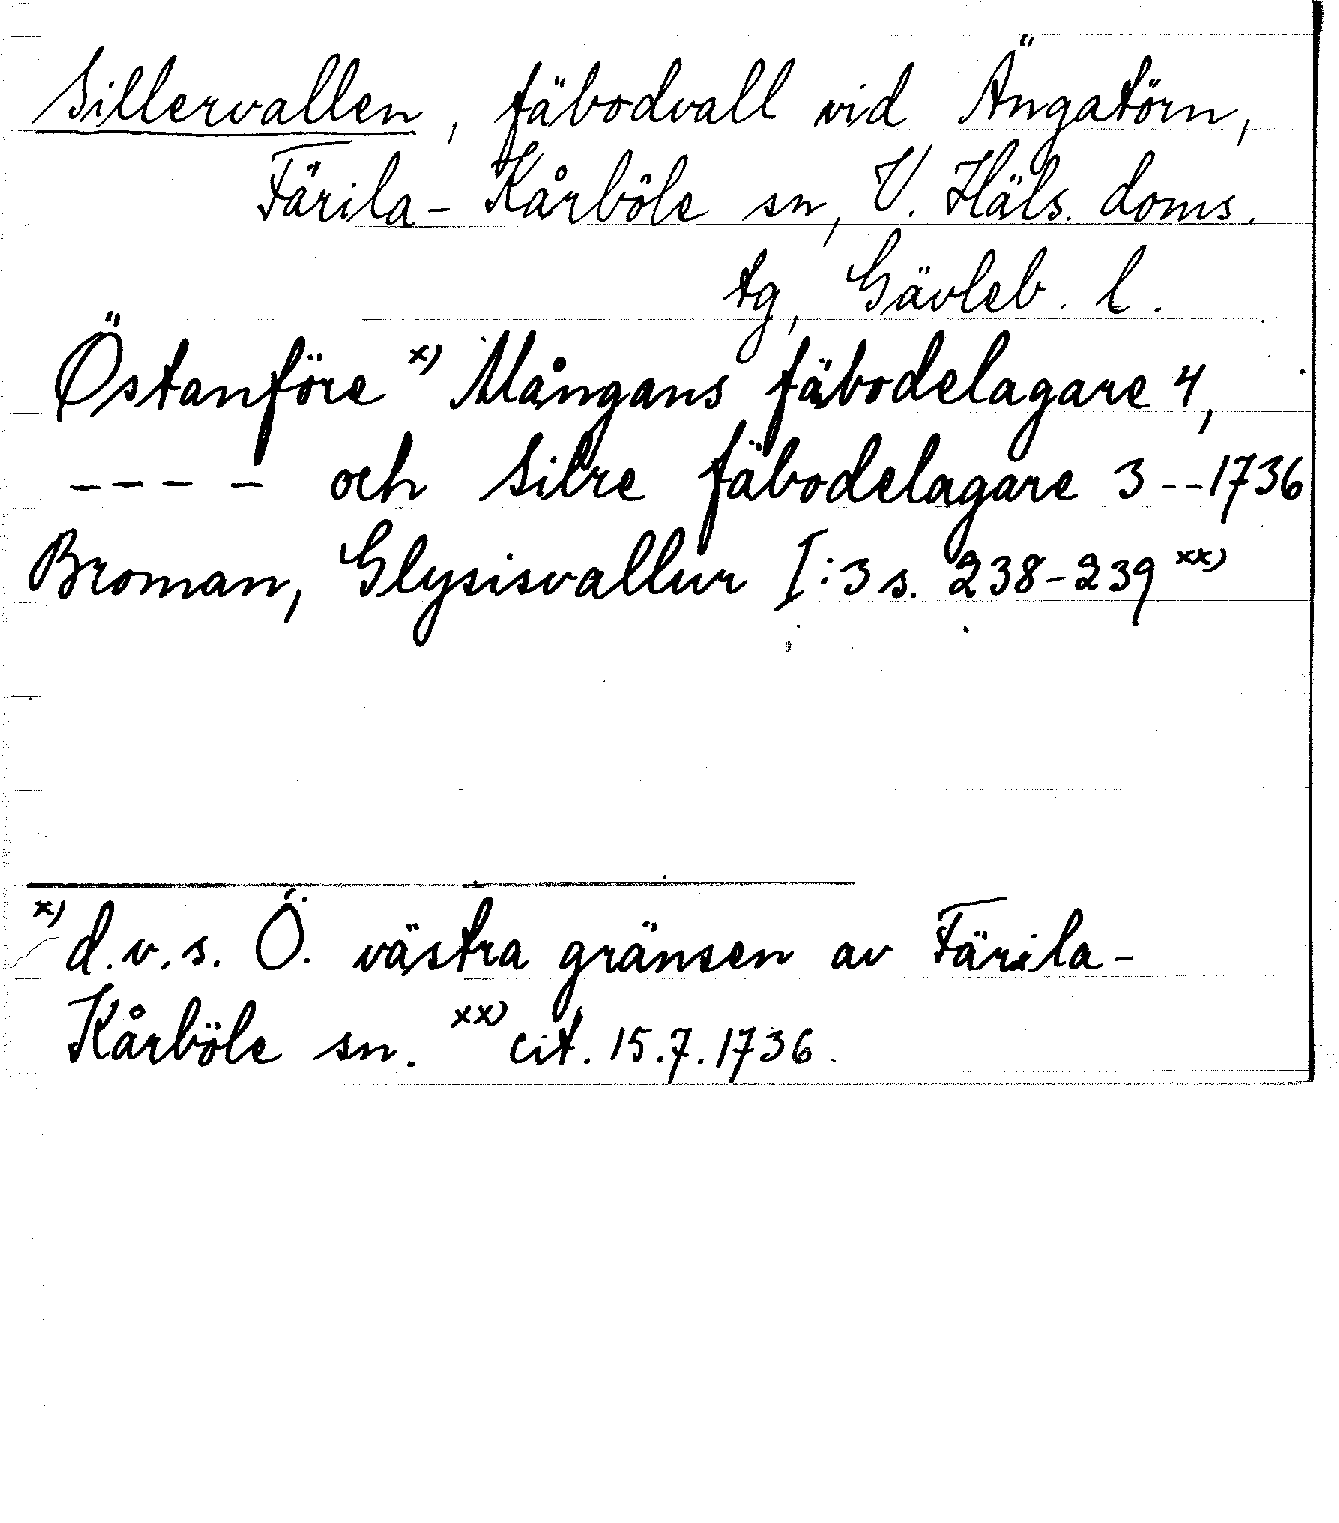 Sillervallen, fäbodvall vid Ängatörn,
Färila-Kårböle sn, V. Häls. doms.
tg, Gävleb. l.
Östanföre x) Mångans fäbodelagare 4,
---- och Silre fäbodelagare 3--1736
Broman, Glysisvallur I:3 s. 238-239 xx)
x) d.v.s. Ö. västra gränsen av Färila-
Kårböle sn. xx) cit. 15.7.1736.